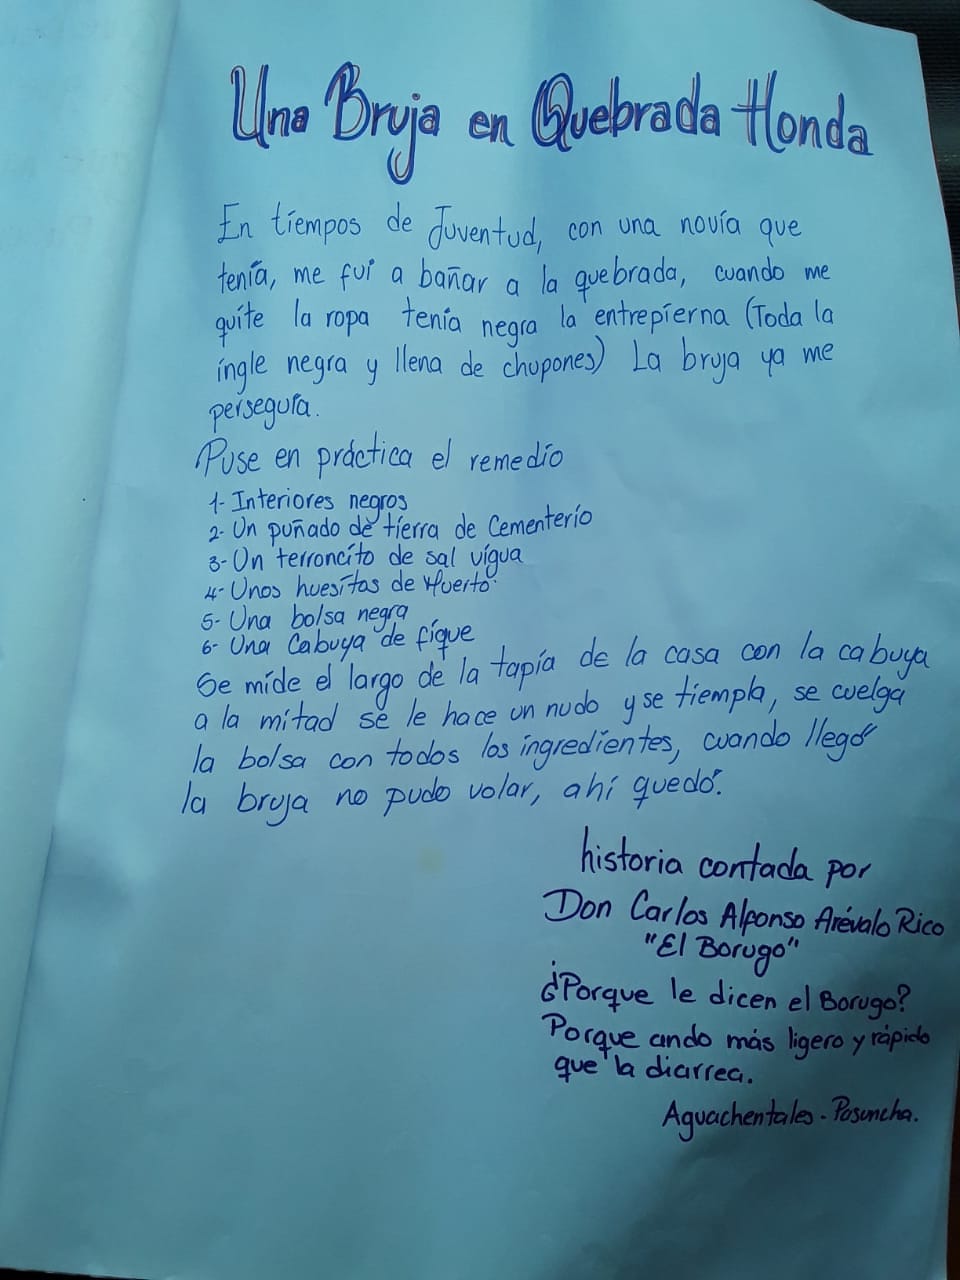 Una Bruja en Quebrada Honda
En tiempos de Juventud, con una novía que
tenía, me fui a bañar a la quebrada, cuando me
quite la ropa tenía negra la entrepierna (Toda la
ingle negra y llena de chupones) La bruja ya me
perseguía.
Puse en práctica el remedio
1- Interiores negros
2- Un puñado de tierra de Cementerio
3- Un terroncito de sal vigua
4- Unos huesitos de Muerto.
5- Una bolsa negra
6- Una Cabuya de fique
Se mide el largo de la tapia de la casa con la cabuya
a la mitad se le hace un nudo y se tiempla, se cuelga
la bolsa con todos los ingredientes, cuando llegó
la bruja no pudo volar, ahí quedó.
historia contada por
Don Carlos Alfonso Arévalo Rico
"El Borugo"
¿Porque le dicen el Borugo?
Porque ando más ligero y rápido
que la diarrea.
Aguachentales - Pasuncha.